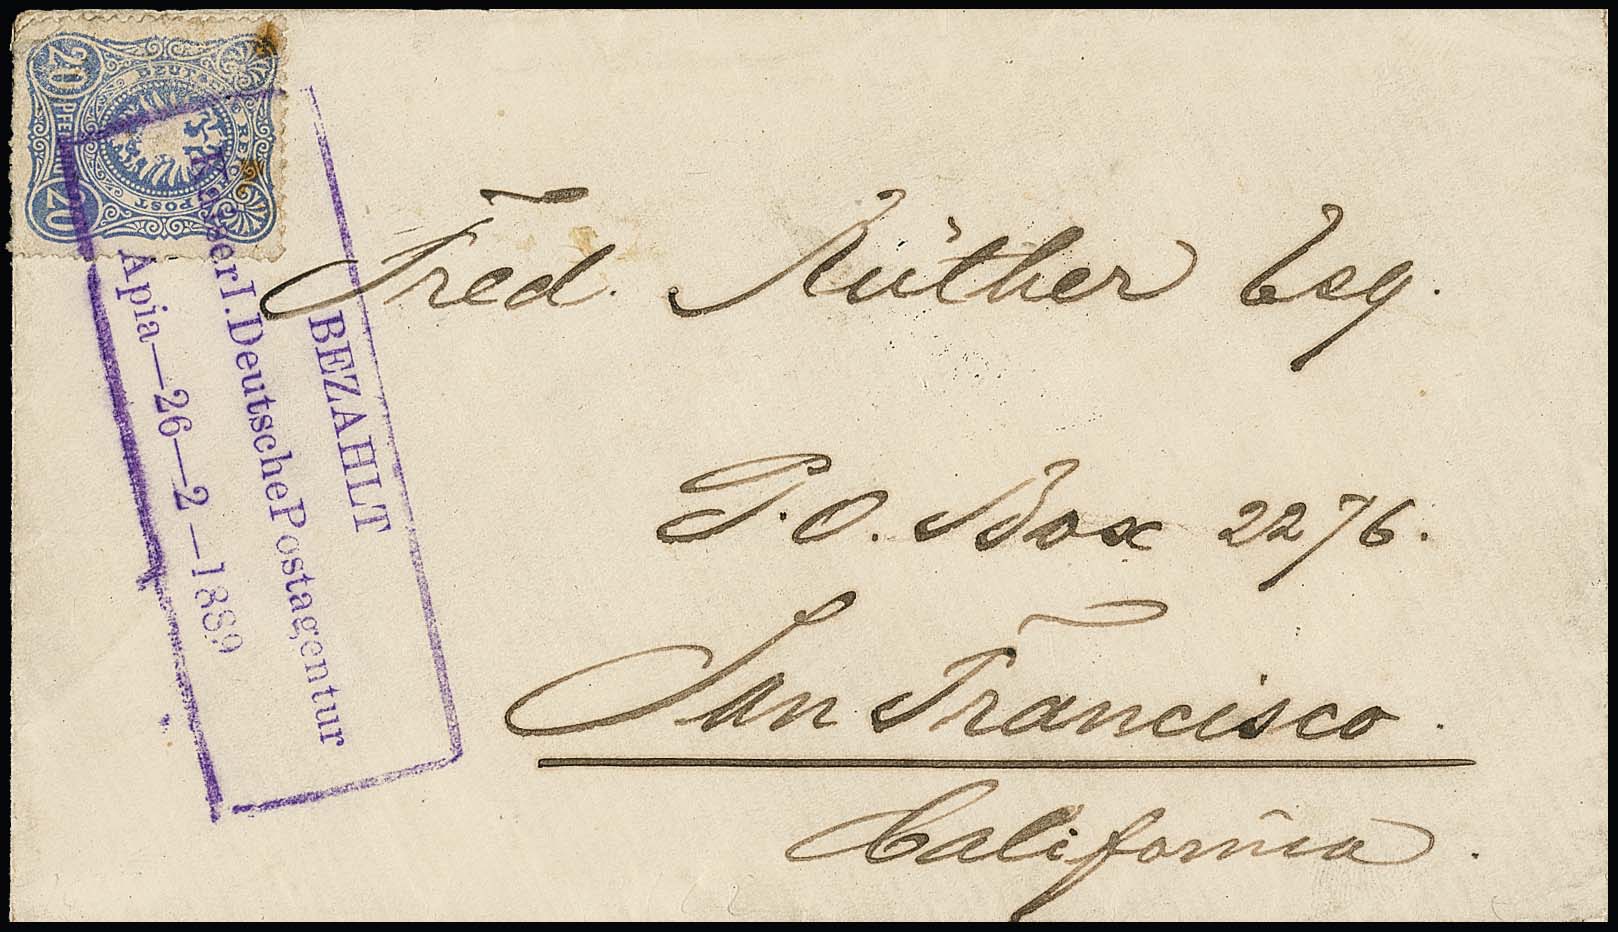 20 PFENNIG 20
DEUTSCHE REICHS POST
BEZAHLT
Kaiserl.DeutschePostagentur
Apia—26—2—1889
Fred. Rüther Esq.
P.O. Box 2276.
San Francisco.
California.